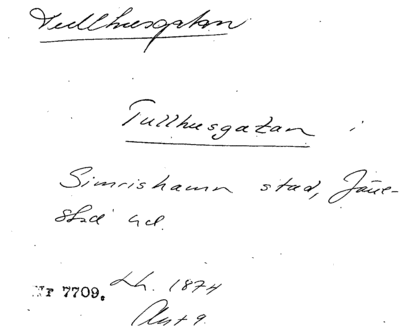 Tullhusgatan
Tullhusgatan i
Simrishamn stad, Järre-
stad hd.
Nr 7709. Lh. 1874
Akt 9.